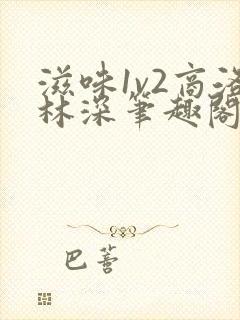 滋味1v2高洛
林深笔趣阁
巴蒼